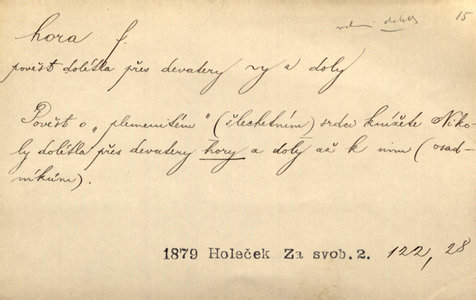 15
hora f.
pověst dolétla přes devatery ~y a doly
Pověst o „plemenitém" (šlechetném) srdce knížete Niko-
ly dolétla přes devatery hory a doly až k nim (osad-
níkům).
1879 Holeček Za svob. 2. 122, 28